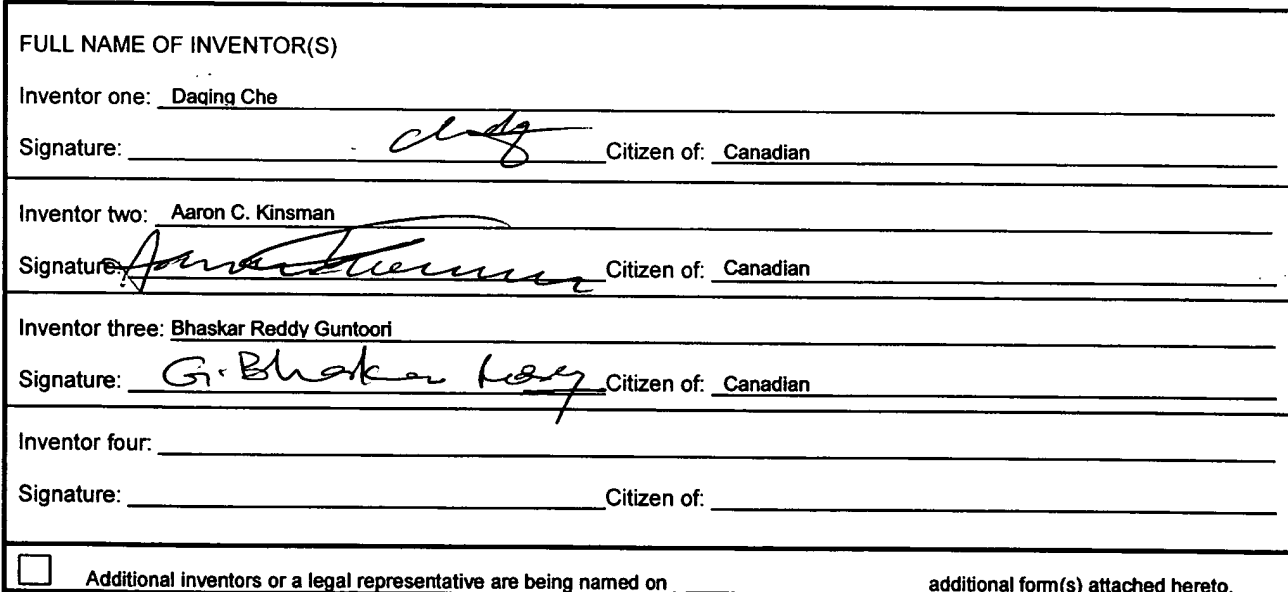 FULL NAME OF INVENTOR(S)
Inventor one: Daqing Che
Signature: Citizen of: Canadian
Inventor two: Aaron C. Kinsman
Signature: Citizen of: Canadian
Inventor three: Bhaskar Reddy Guntoori
Signature: G. Bhaskar Citizen of: Canadian
Inventor four:
Signature: Citizen of:
Additional inventors or a legal representative are being named on additional form(s) attached hereto.